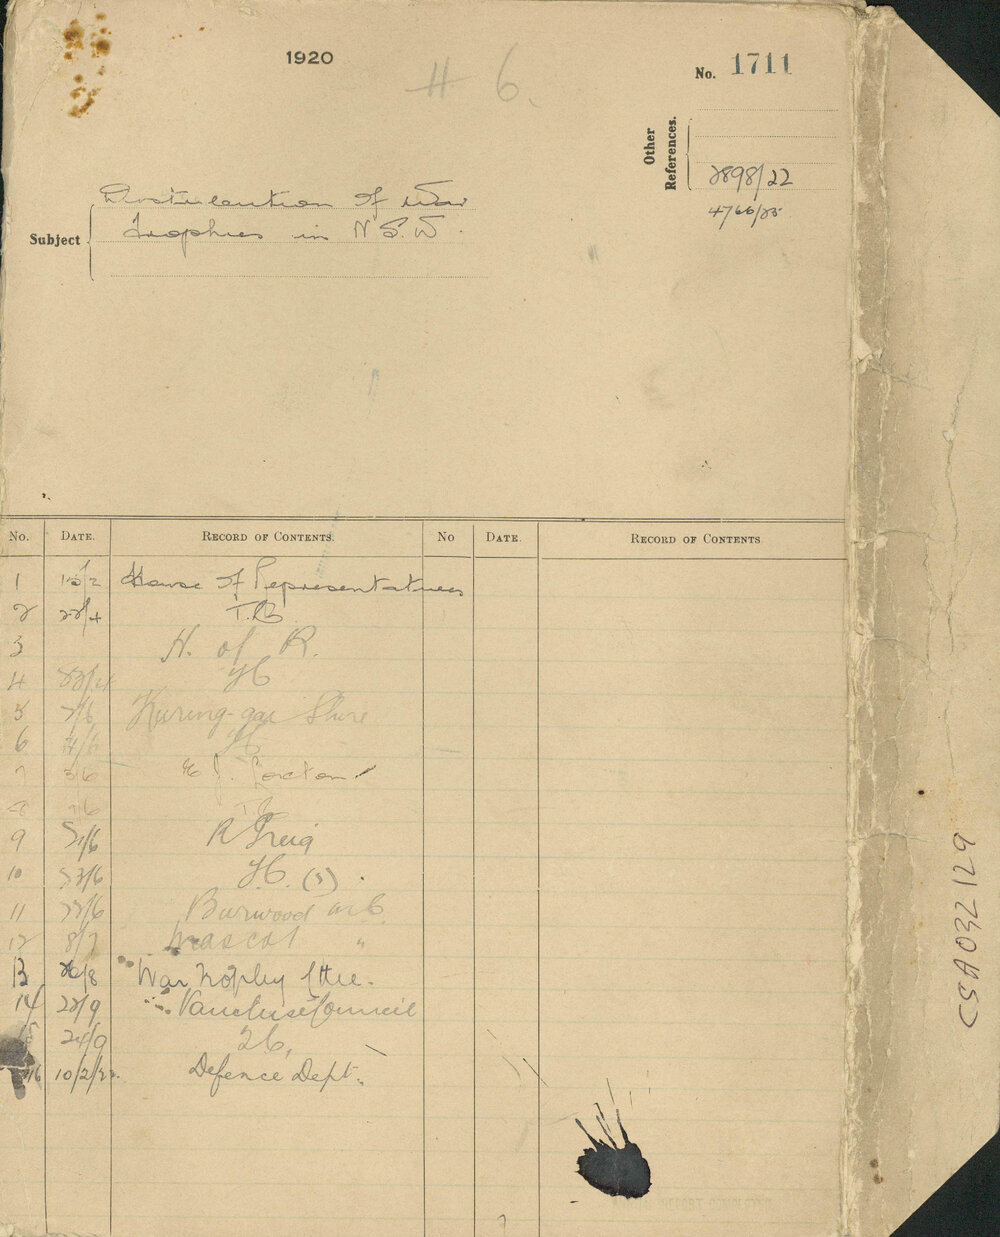 1920
H 6.
No. 1711
Other References.
2898/22
4766/25
Subject
Distribution of War
Trophies in N.S.W.
No. DATE. RECORD OF CONTENTS. No DATE. RECORD OF CONTENTS
1 House of Representatives
2 22/4 T.C
3 H. of R.
4
5 7/6 Kuring-gai Shire
6
7 3/6
8
9 21/6 R Greig
10 T.C.
11 22/6 Burwood
12 8/7 Mascot "
13 26/8 War Trophy Cttee.
14 22/9 Vaucluse Council
15 24/9
16 10/2/22. Defence Dept.
CSA032129